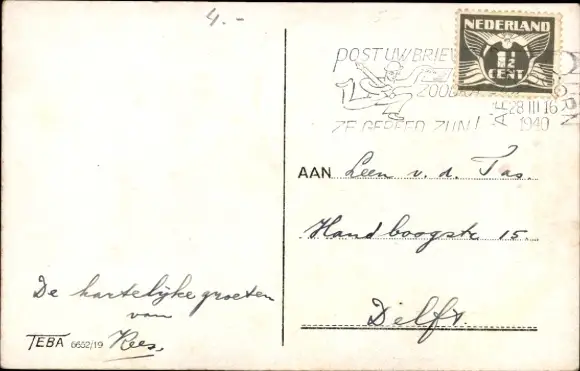 4.-
NEDERLAND
1½
CENT
POST UW BRIEV
ZOODRA
ZE GEREED ZIJN!
28 III 16
1940
AAN Leen v. d. Tas.
Handboogstr 15.
Delft.
De hartelijke groeten
van
Kees.
TEBA 6652/19